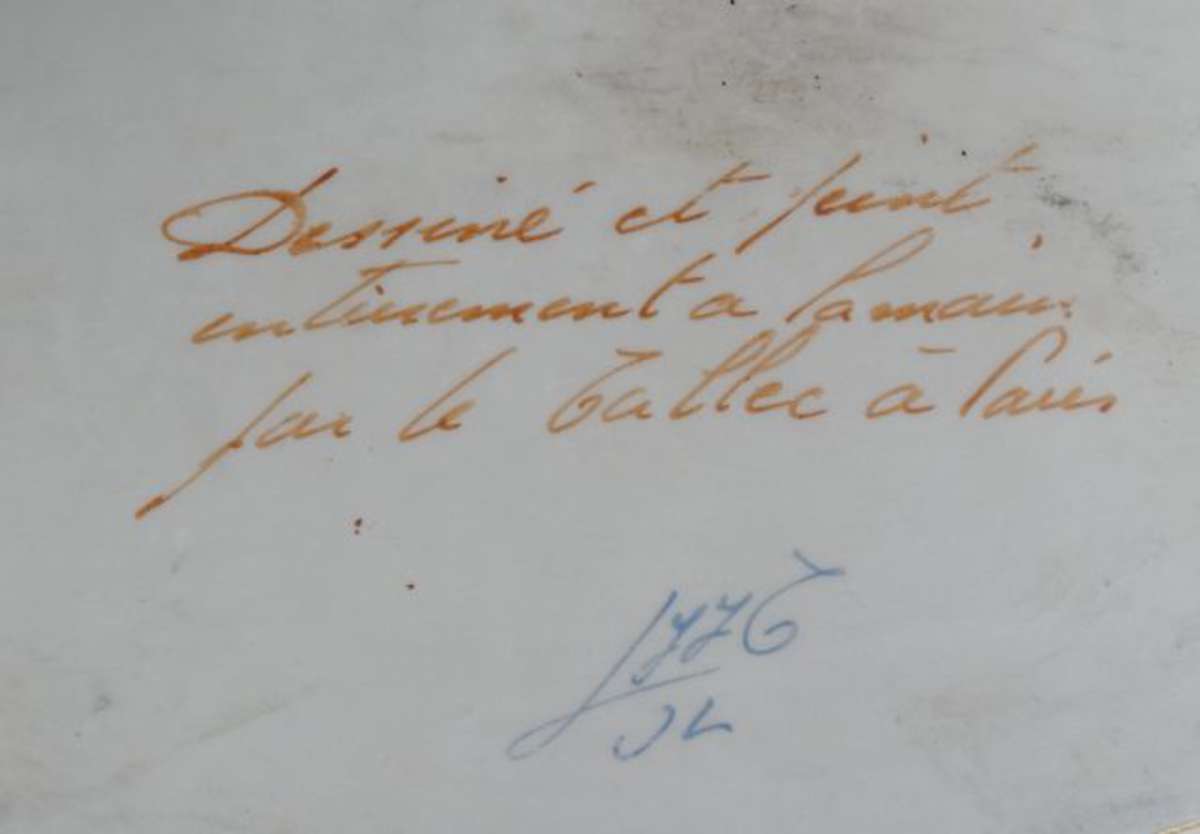 Dessiné et peint
entierement a la main
par le Tallec à Paris